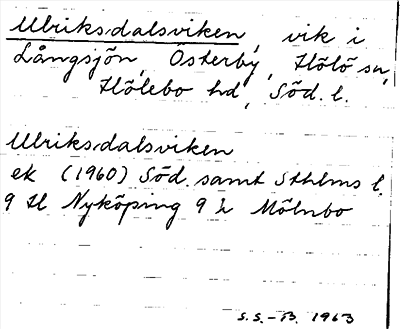 Ulriksdalsviken, vik i
Långsjön, Österby, Hölö sn,
Hölebo hd, Söd. l.
Ulriksdalsviken
ek (1960) Söd. samt Sthlms l.
9 H Nyköping 9 h Mölnbo
S.S.-B. 1963